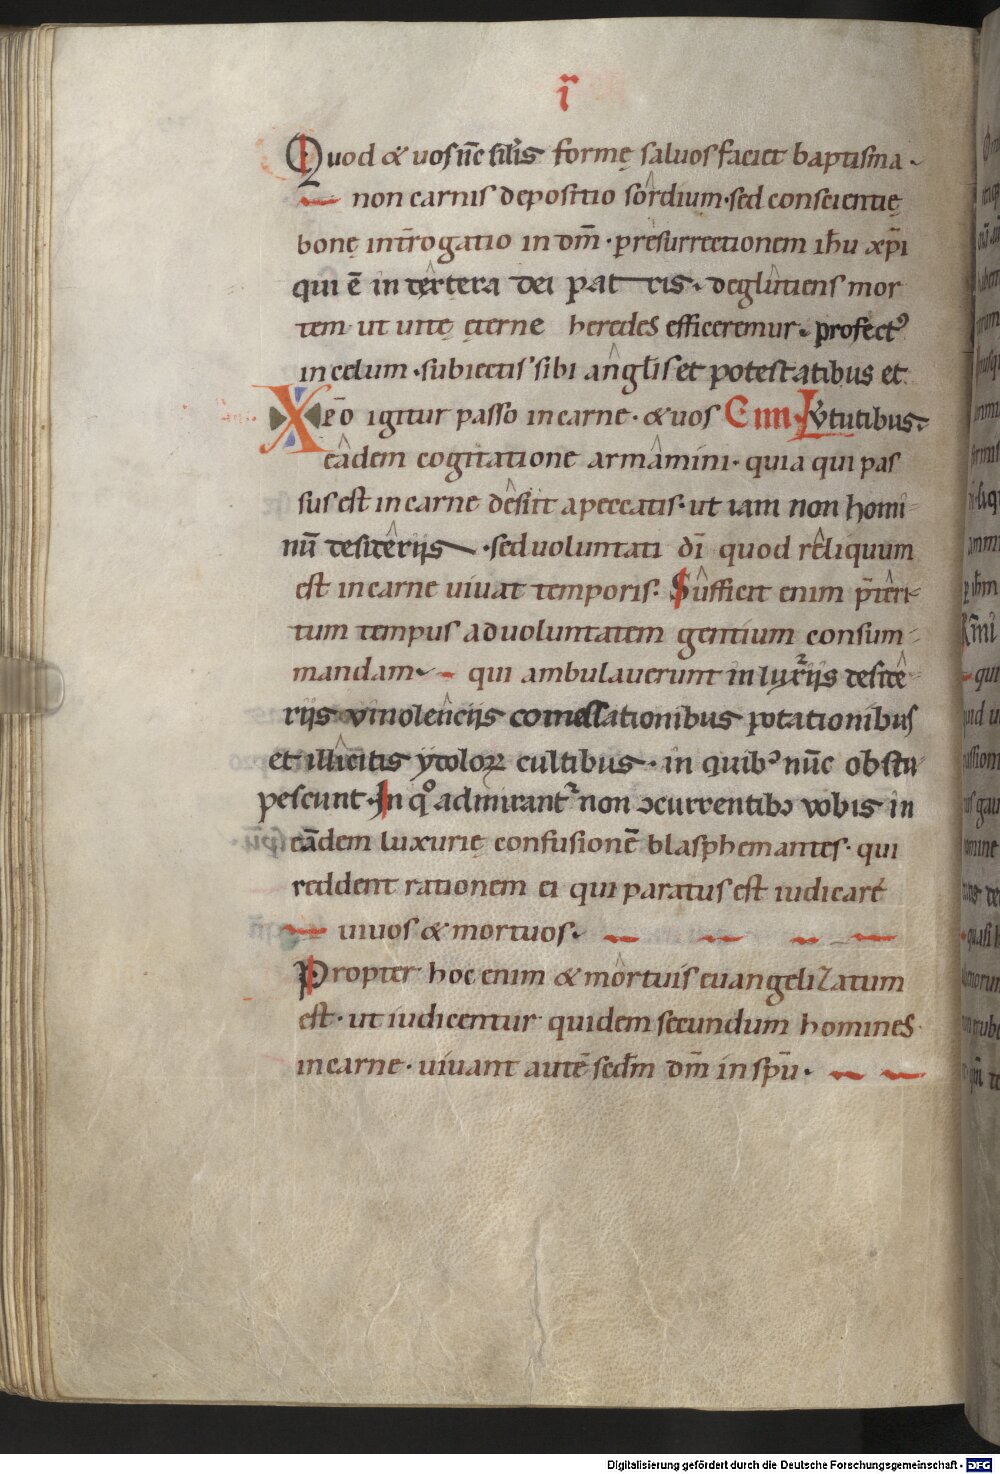 ï
Quod & uos nc̄ silis formę saluos faciet baptisma .
non carnis depositio sordium · sed conscientię
bonę int̄rogatio in dm̄ · p resurrectionem ih̄u xp̄i
qui ē in dextera dei patris · deglutiens mor
tem ut uitę ęterne heredes efficeremur · profectꝰ
in celum · subiectis sibi anglis et potestatibus et
Xp̄o igitur passo in carne · & uos uirtutibus
eadem cogitatione armamini · quia qui pas
sus est in carne desiit a peccatis · ut iam non homi-
nū desiderijs · sed uoluntati dī quod reliquum
est in carne viuat temporis · Sufficit enim p̄teri-
tum tempus ad uoluntatem gentium consum-
mandam qui ambulauerunt in luxurijs deside
rijs vinolencijs comessationibus potationibus
et illicitis ydoloꝝ cultibus · in quibꝰ nūc obstu-
pescunt · In qͦ admirantr non ɔcurrentibꝫ vobis in
eādem luxurię confusionē blasphemantes · qui
reddent rationem ei qui paratus est iudicare
uiuos & mortuos ·
Propter hoc enim & mortuis euangelizatum
est · ut iudicentur quidem secundum homines
in carne · viuant autē secdm̄ dm̄ in spū ·
Digitalisierung gefördert durch die Deutsche Forschungsgemeinschaft - DFG